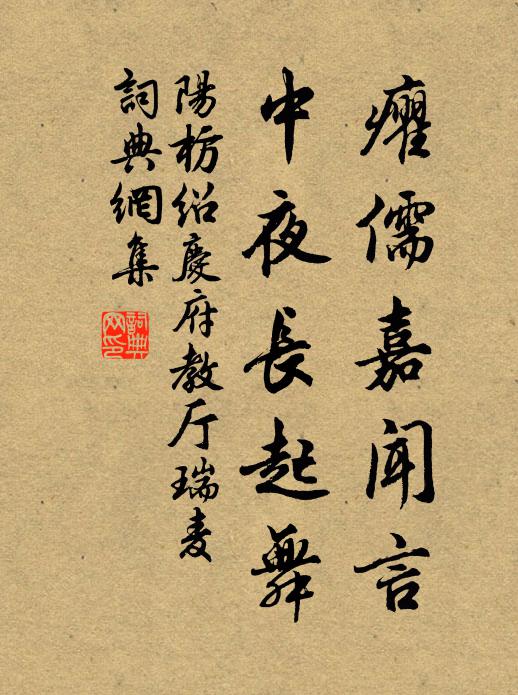 癯儒嘉闻言
中夜長起舞
陽枋绍慶府教厅瑞麦
詞典網集
詞典网印